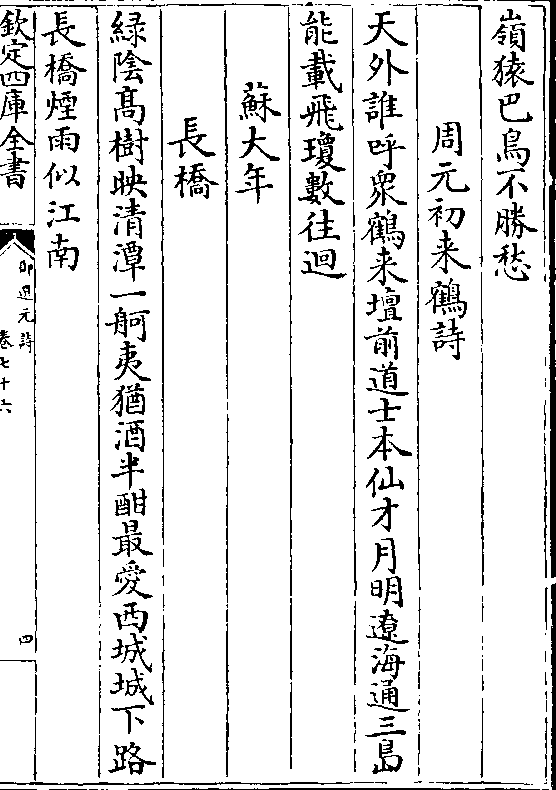 嶺猿巴鳥不勝愁
周元初来鶴詩
天外誰呼衆鶴来壇前道士本仙才月明遼海通三島
能載飛瓊數往迴
蘇大年
長橋
緑陰髙樹映清潭一舸夷猶酒半酣最愛西城城下路
長橋煙雨似江南
欽定四庫全書
御選元詩
卷七十六
四